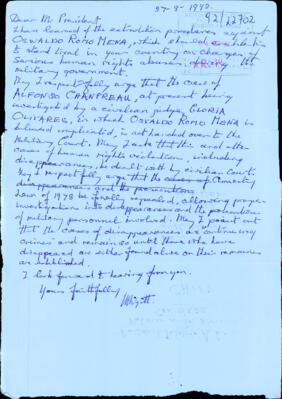 27-9-1992.
92/22702
Dear Mr President,
I have learned of the extradition procedures against
OSWALDO ROMO MENA, which should enable him
to stand trial in your country on charges of
serious human rights abuses under the
military government.
May I respectfully urge that the case of
ALFONSO CHANFREAU, at present being
investigated by a civilian judge, GLORIA
OLIVARES, in which OSVALDO ROMO MENA is
believed implicated, is not handed over to the
Military Court. May I ask that this and other
cases of human rights violation, including
disappearances, be dealt with by civilian courts.
May I respectfully urge that the Amnesty
disappearances and the
Law of 1978 be finally repealed, allowing proper
investigation into disappearances and the prosecution
of military personnel involved. May I point out
that the cases of disappearances are continuing
crimes and remain so until those who have
disappeared are either found alive or their remains
are established.
I look forward to hearing from you.
Yours faithfully